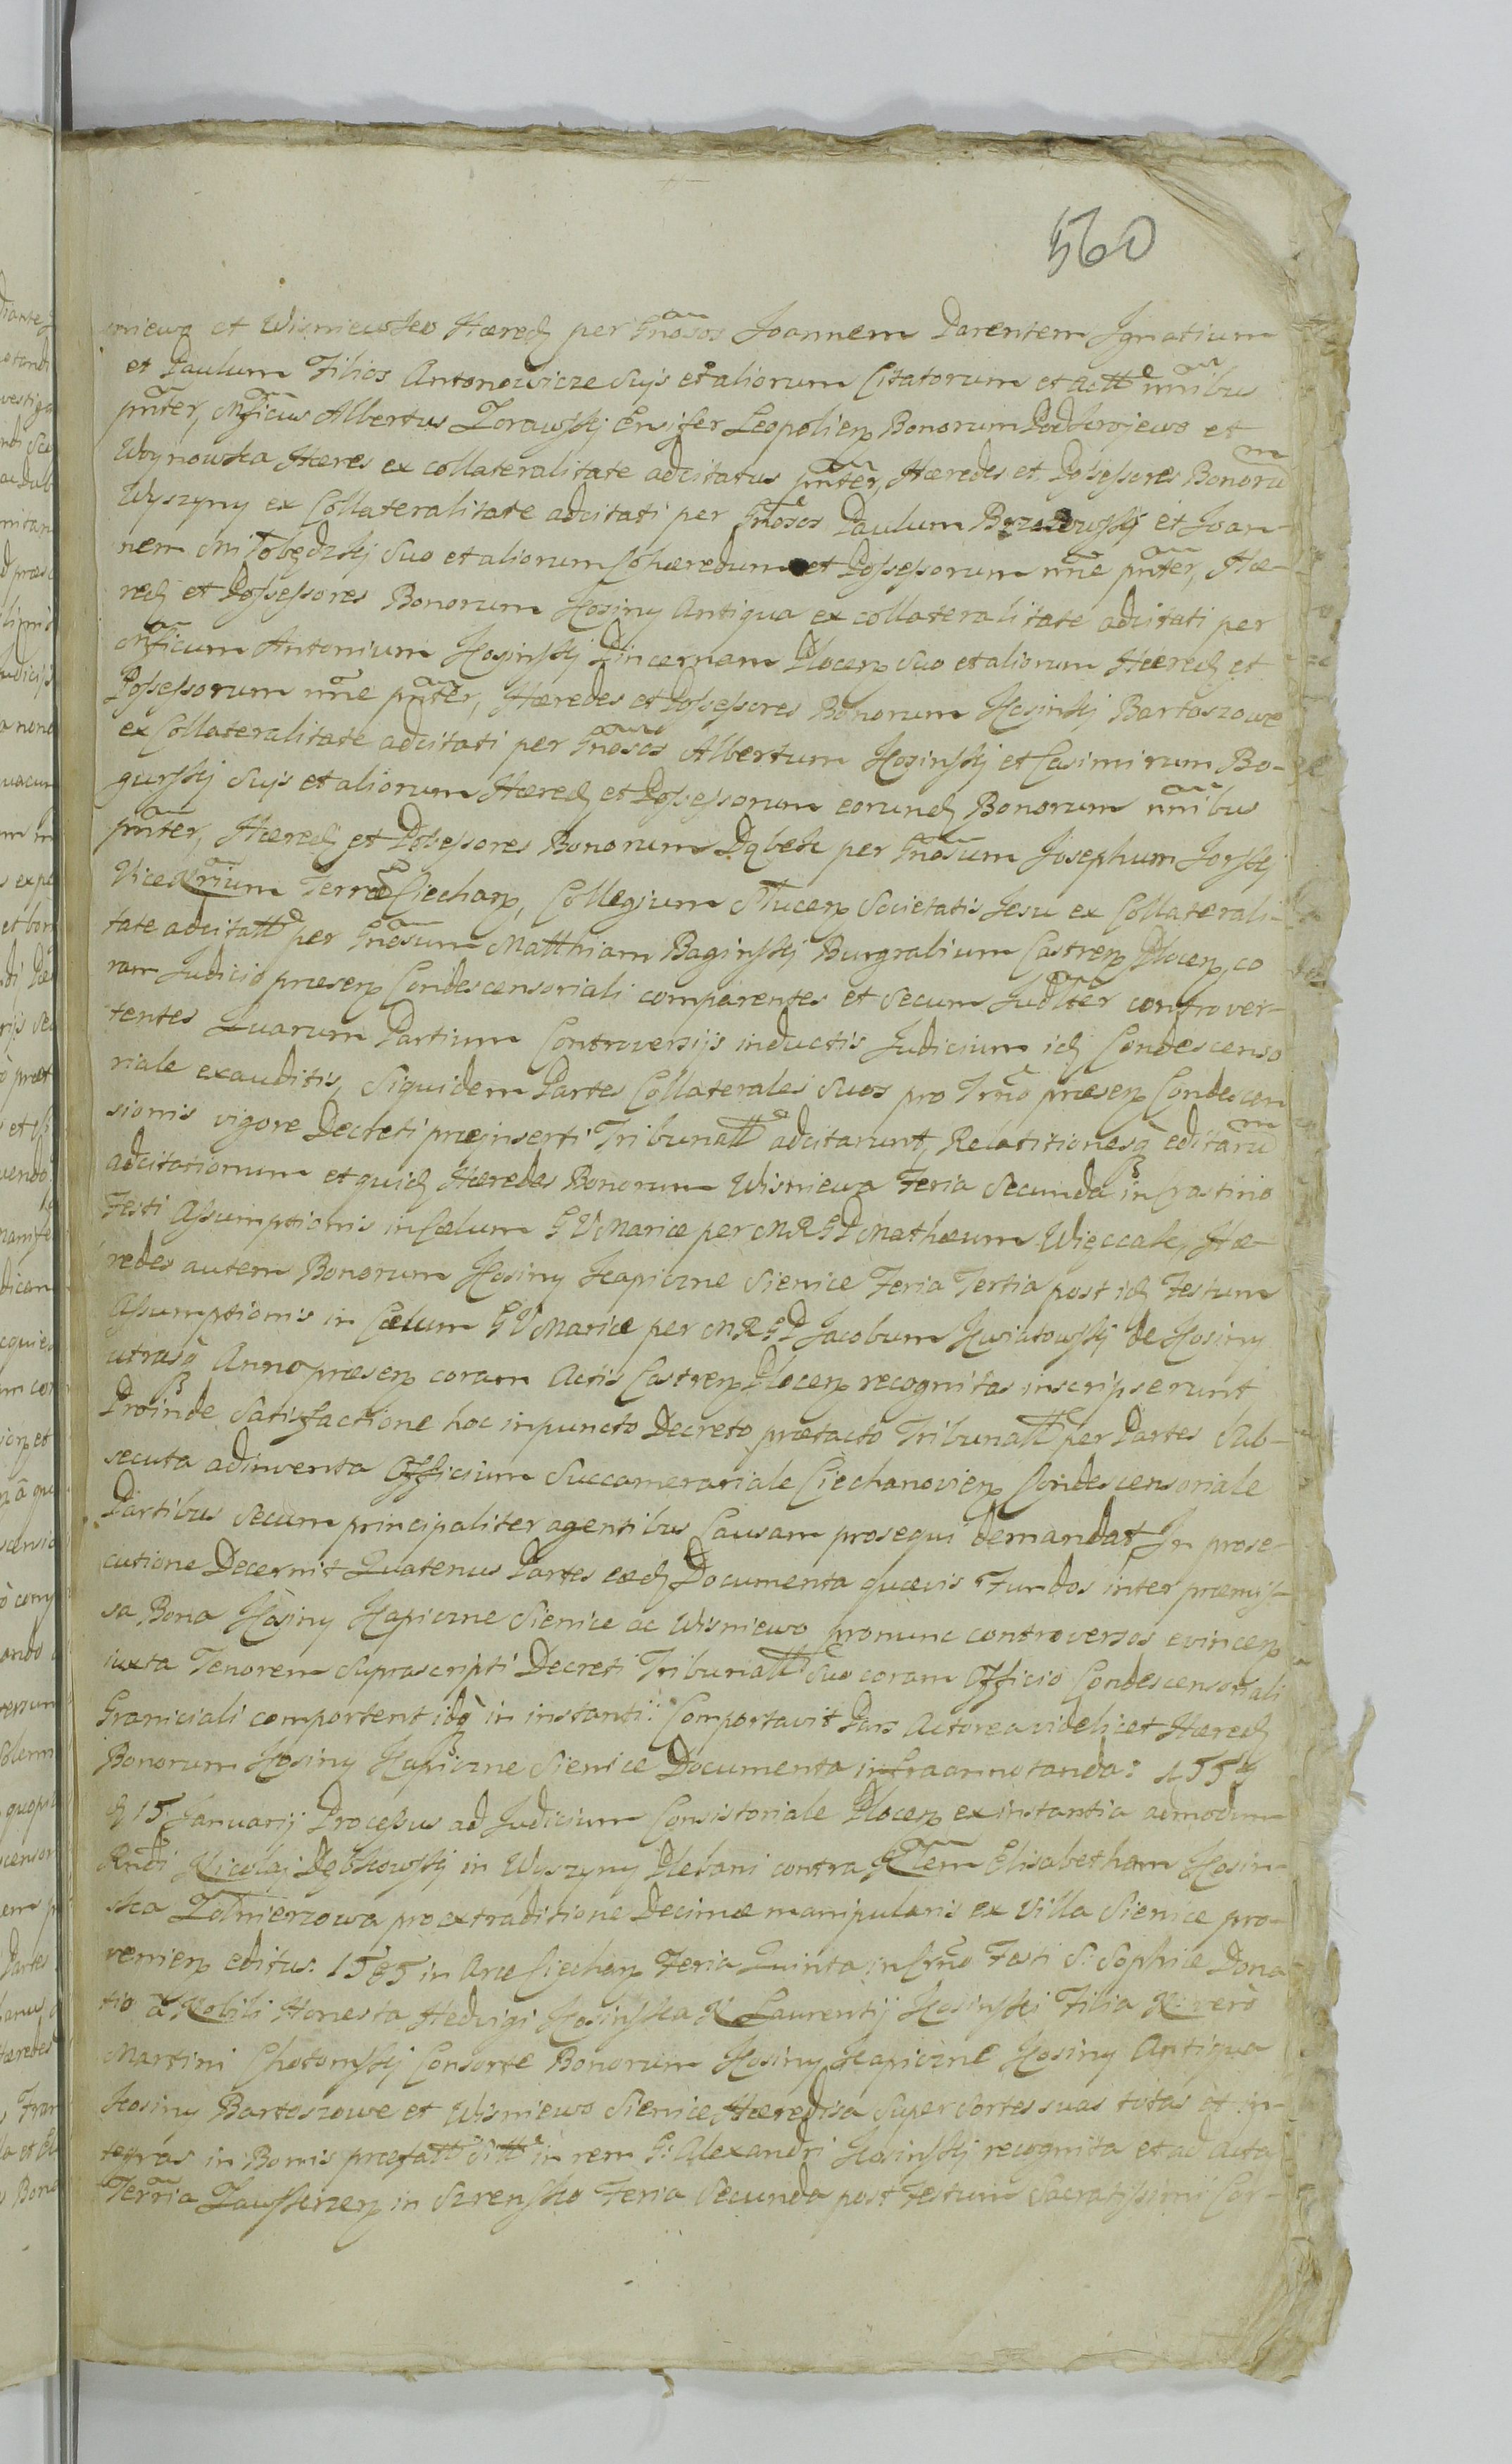 560
sniewa et Wisniewko Hæred per Gnosos Joannem Parentem Ignatium
et Paulum Filios Antonowicze Suis et aliorum Citatorum et Actt nnibus
pnter, Mficus Albertus Zorawskj Ensifer Leopolien Bonorum et
Woynowka Hæres ex collateralitate adcitatus pnter, Hæredes et Possessores Bonoru
Wyszyny ex Collateralitate adcitati per Gnosos Paulum et Joan-
nem Mitobędzkj Suo et aliorum Cohæredum et Possessorum nne pnter, Hæ-
red et Possessores Bonorum Kosiny Antiqua ex collateralitate adcitati per
Mficum Antonium Kosinskj Pincernam Plocen Suo et aliorum Hæred et
Possessorum nne pnter, Hæredes et Possessores Bonorum Kosinkj Bartoszowe
ex Collateralitate adcitati per Gnosos Albertum Kosinskj et Casimirum Bo-
gurskj Suis et aliorum Hæred et Possessorum eorund Bonorum nnibus
pnter, Hæred et Possessores Bonorum Dąbek per Gnosum Josephum Jorskj
Terræ Ciechan, Collegium Societatis Jesu ex Collaterali-
tate adcitatt per Gnosum Matthiam Baginskj Burgrabium Castren Plocen, co
ram Judicio præsen Condescensoriali comparentes et Secum Judlter controver-
tentes Quarum Partium Controversijs inductis Judicium id Condescenso
riale exauditis, Siquidem Partes Collaterales Suos pro Trno præsen Condescen
sionis vigore Decreti præinserti Tribunatt adcitarunt, Relatitionesq editaru
adcitationum et quid Hæredes Bonorum Wisniewa Feria Secunda in Crastino
Festi Assumptionis in Cælum BV Mariæ per MRGD Mathæum Więccak, Hæ-
redes autem Bonorum Kosiny Kapiczne Sienice Feria Tertia post id Festum
Assumptionis in Cælum BV Mariæ per MRGD Jacobum Kwiatowskj de Kosiny
utrasq Anno præsen coram Actis Castren Plocen recognitas inscripserunt
Proinde Satisfactione hoc in puncto Decreto prætacto Tribunatt per Partes Sub-
secuta adinventa Officium Succamerariale Ciechanovien Condescensoriale
Partibus Secum principaliter agentibus Causam prosequi demandat In prose-
cutione Decernit Quatenus Partes eæd Documenta quævis Fundos inter præmis-
sa Bona Kosiny Kapiczne Sienice ac Wisniewo pronunc controversos evincen
iuxta Tenorem Suprascripti Decreti Tribunatt Suo coram Officio Condescensoriali
Graniciali comportent idq in instanti: Comportavit Pars Actorea videlicet Hæred
Bonorum Kosiny Kapiczne Sienice Documenta infraannotanda:
d 15 Januarij Processus ad Judicium Consistoriale Plocen ex instantia admodum
Rndi Nicolaj Dębskowskj in Wyszyny Plebani contra Elisabetham Kosin-
ska Zołnierzowa pro extraditione Decimæ manipularis ex Villa Sienice pro-
venien editus. 1585 in Arce Ciechan Feria Quinta in Crno Festi S: Sophiæ Dona
tio a Nobili Honesta Hedvigi Kosinska N Laurentij Kosinski Filia N: vero
Martini Chotomskj Consorte Bonorum Kosiny Kapiczne Kosiny Antiqua
Kosiny Bartoszowe et Wisniewo Sienice Hæredisa Super Sortes suas totas et in-
tegras in Bonis præfatt Sitt in rem G: Alexandri Kosinskj recognita et ad Acta
Terria Zawskrzen in Szrensko Feria Secunda post Festum Sacratissimi Cor-